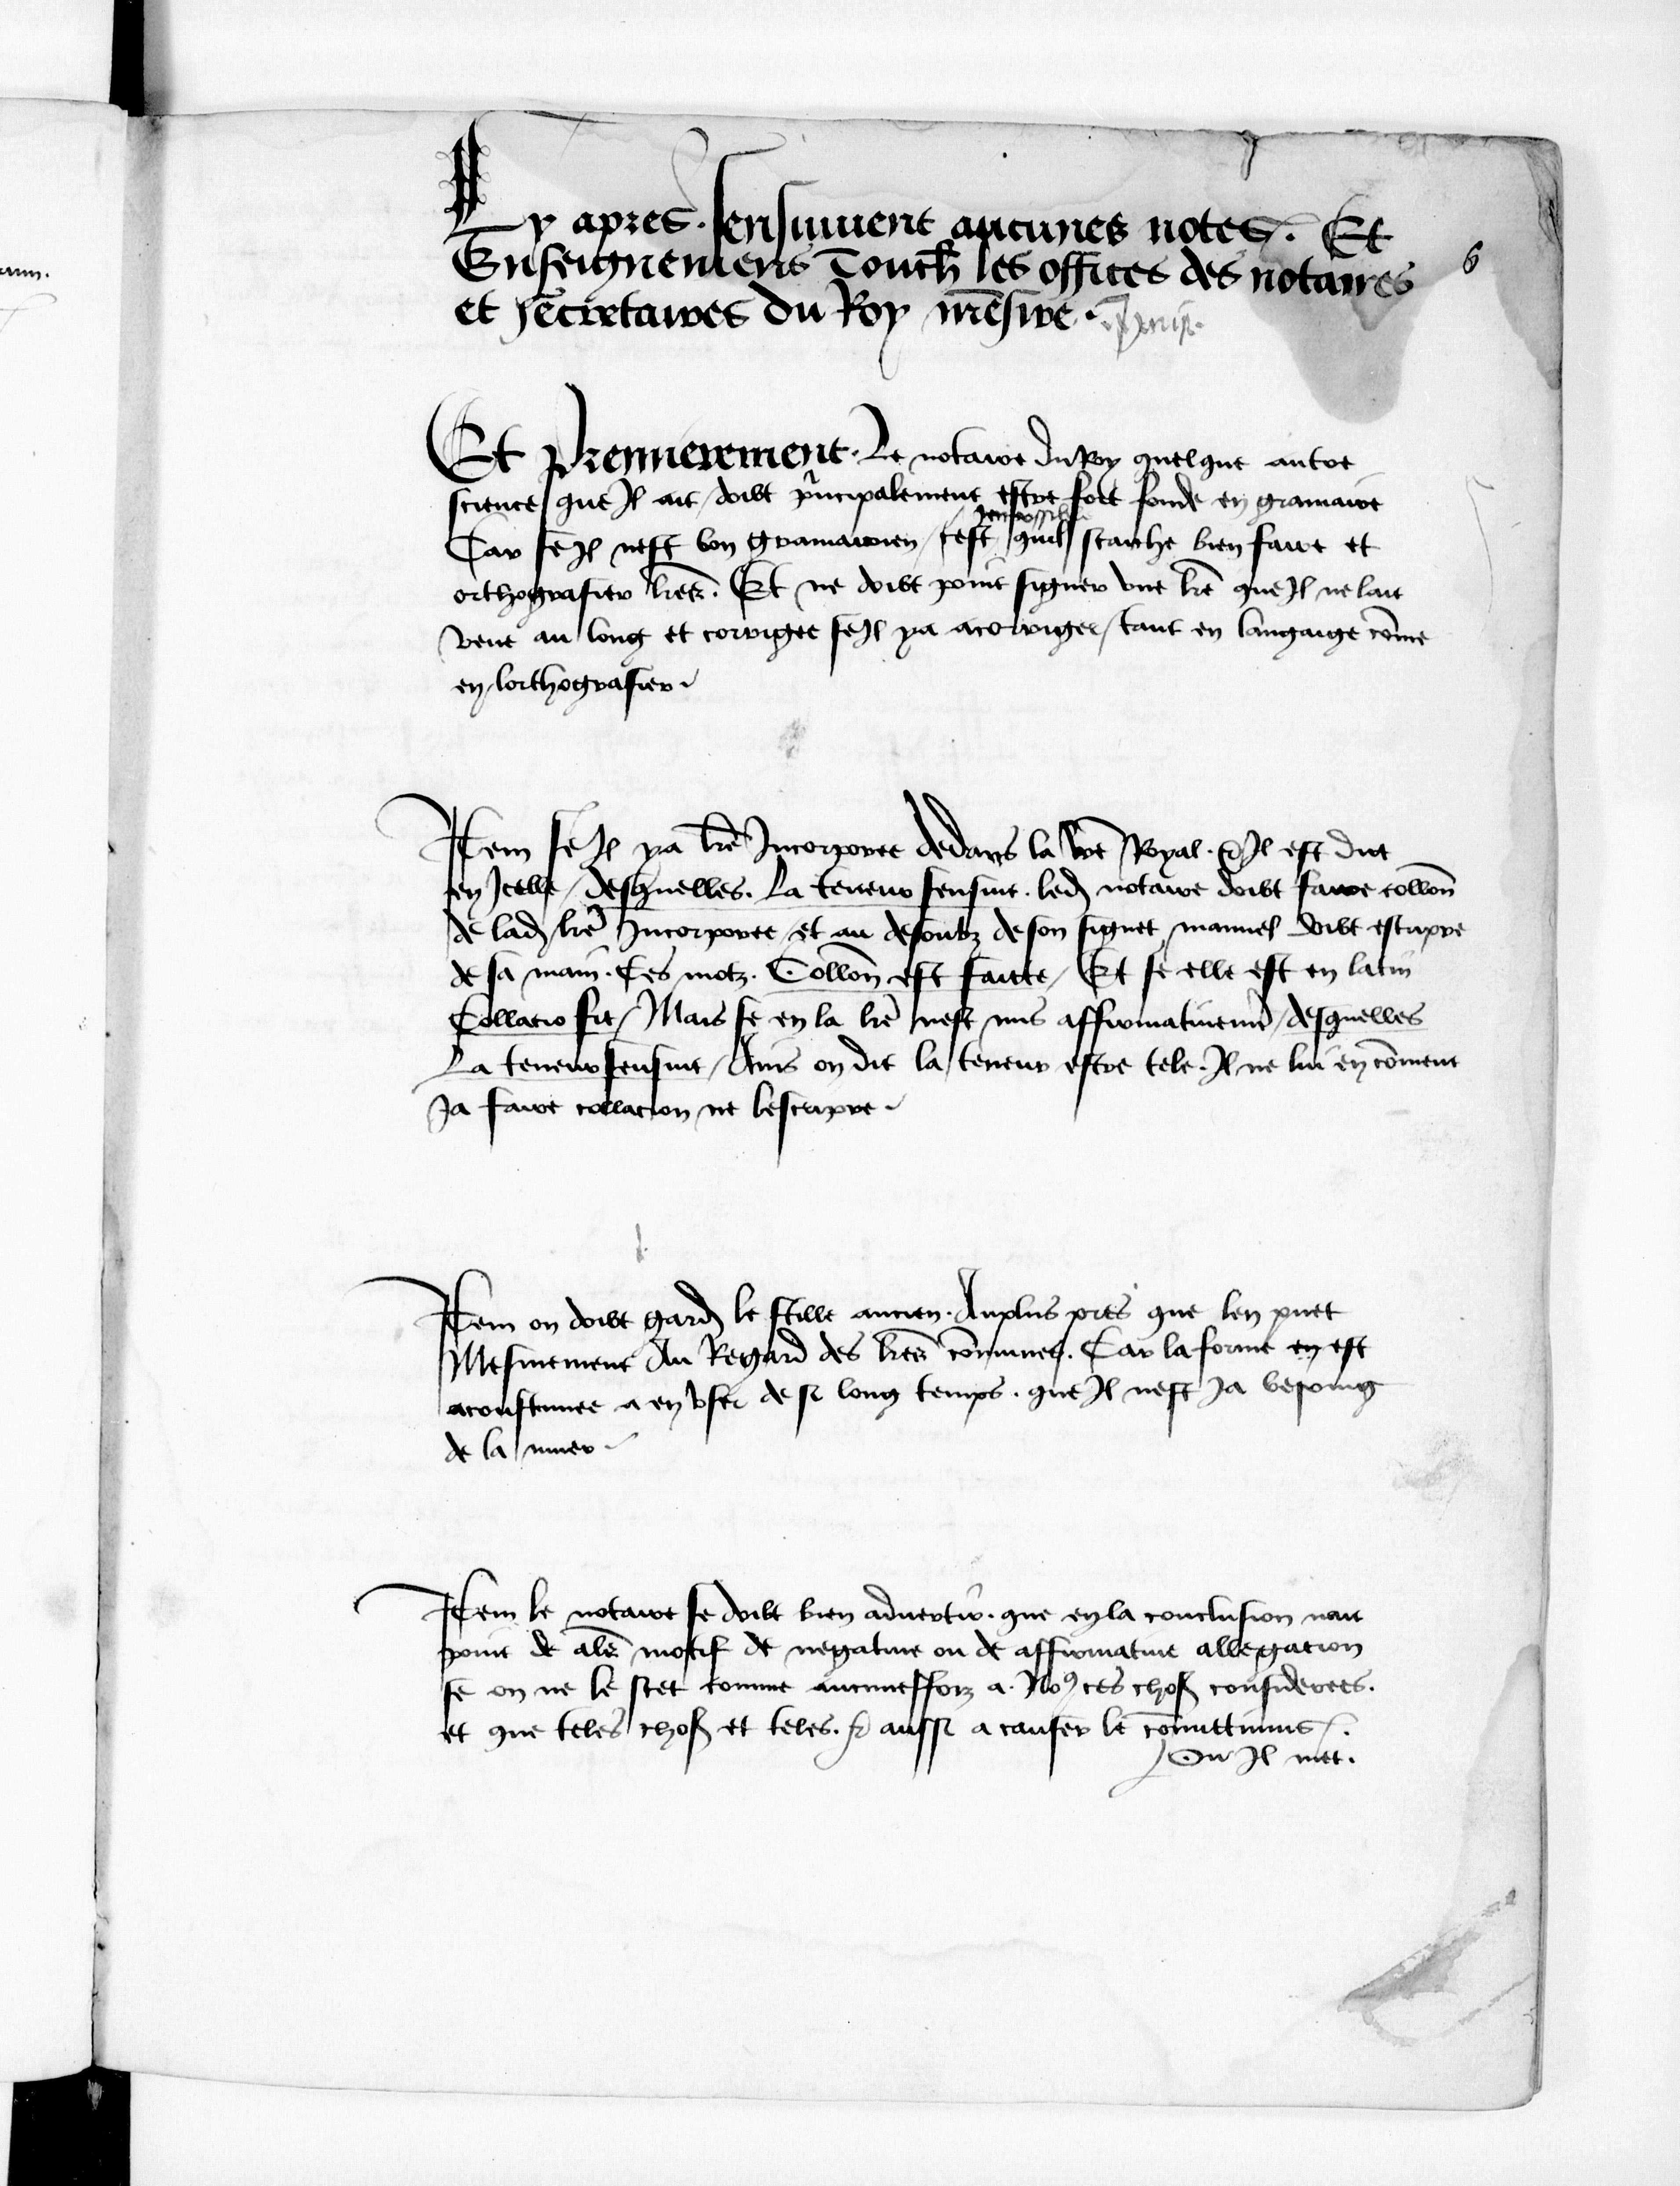 Cy apres. sensuivent aucunes notes. Et
6
Enseignemens Touch̃ les offices des notaires
et secretaires du Roy nr̃esire.
Et Premierement. Le notaire du Roy quelque autre
science que Jl ait / doibt p̃ncipalement estre fort fonde en gramaire
Car se Jl nest bon gramairien / cest quil scaiche bien faire et
orthografier lr̃es. Et ne doibt point signer vne lr̃e que Jl ne lait
veue au long et corrigee se Jl ya a corriger / tant en langaige cõme
en lorthografier
Item se Jl ya lr̃e Incorporee dedans la lr̃e Royal. & Jl est dit
en Jcelle / desquelles. La teneur sensuit. led notaire doibt faire collon̄
de lad lr̃e Incorporee / et au desoubz de son signet manuel doibt escripre
de sa main. Ces motz. Collon̄ est faitte / Et se elle est en latin
Collacio fit / Mais se en la lr̃e nest mis affirmativem̃t / desquelles
La teneur sensuit / Ains on dit la teneur estre tele. Jl ne lui en cõvient
Ja faire collacion ne lescripre
Item on doibt gard le stille ancien. Auplus pres que len puet
Mesmement Au Regard des lr̃es cõmunes. Car la forme en est
acoustumee a en vser de si long temps. que Jl nest Ja besoing
de la muer
Item le notaire se doibt bien advertir. que en la conclusion nait
point de alẽ motif de negative ou de affirmative allegacion
se on ne le scet comme aucunesfoiz a. No9 ces chos considerees.
et que teles chos et teles. aussi a causer le cõmittimus.
Ou Jl met.